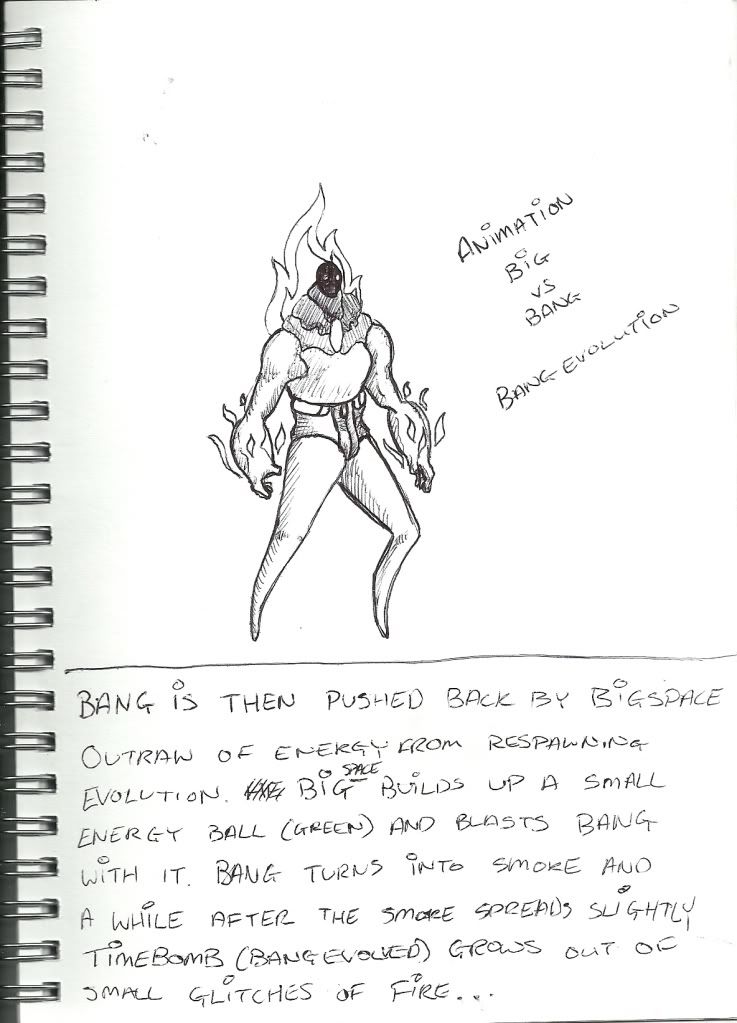 ANiMATiON
BiG
VS
BANG
BANG EVOLUTiON
BANG iS THEN PUSHED BACK BY BiGSPACE
OUTRAW OF ENERGY FROM RESPAWNING
EVOLUTION. BiG SPACE BUiLDS UP A SMALL
ENERGY BALL (GREEN) AND BLASTS BANG
WiTH IT. BANG TURNS iNTO SMOKE AND
A WHiLE AFTER THE SMOKE SPREADS SLiGHTLY
TiMEBOMB (BANG EVOLVED) GROWS OUT OF
SMALL GLiTCHES OF FiRE...